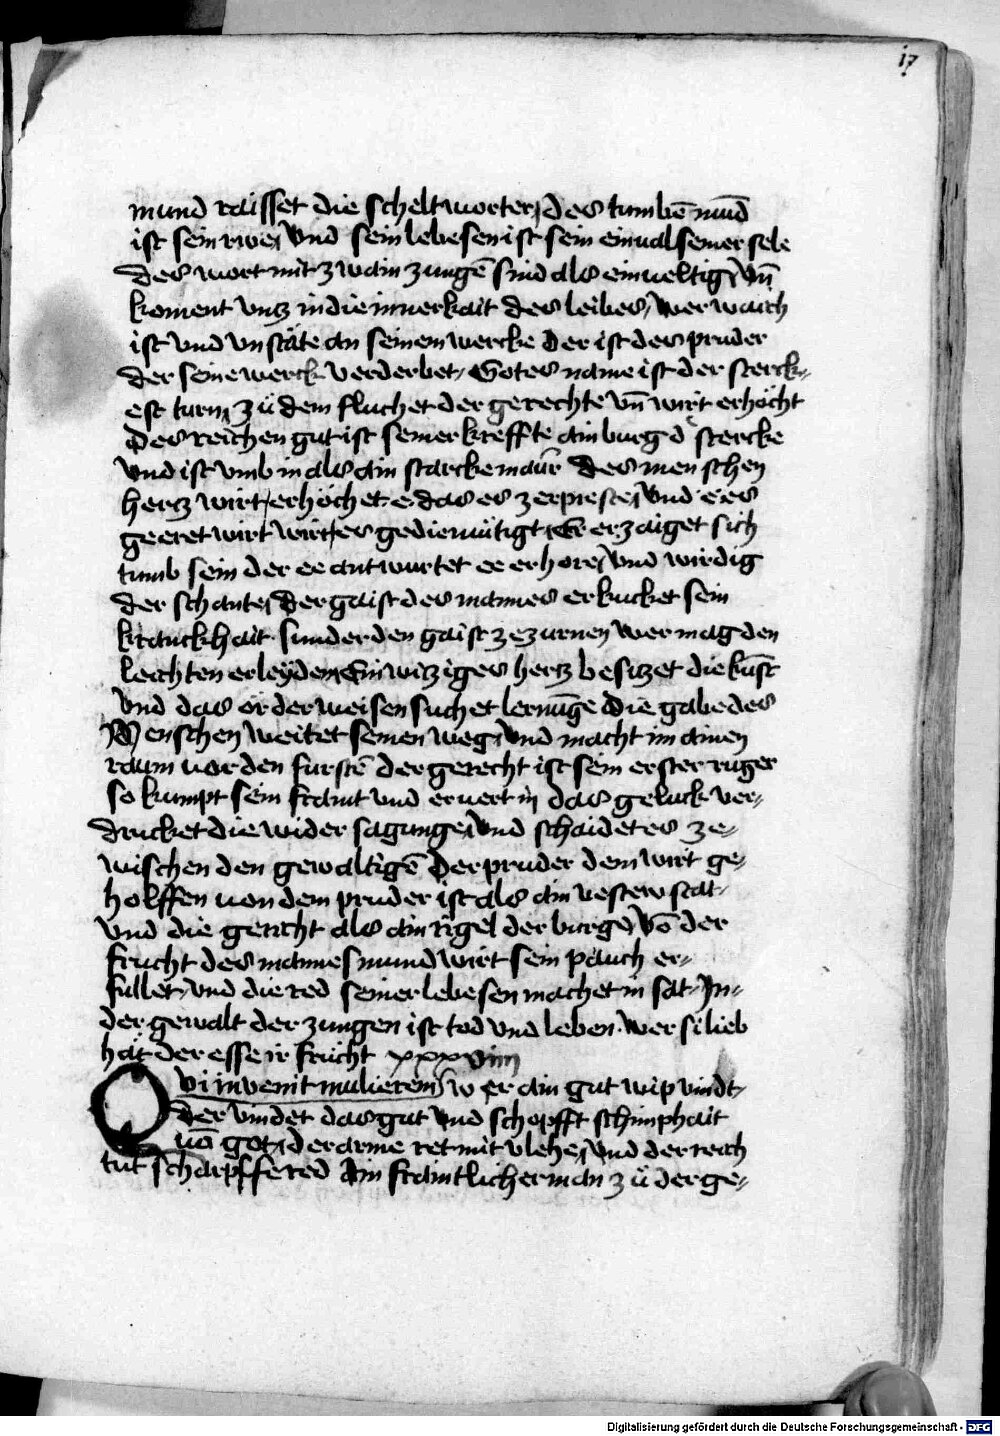 17
mund raisset die scheltworter, des tumbē mūd
ist sein rwe, vnd sein lebesen ist sein einual seiner sele
des wort mit zwain zungē sind als einueltig, vn̄
koment vnz in die innerkait des leibes, wer waich
ist vnd vnstäte an seinem wercke der ist des pruder
der seine werck verderbet, Gotes name ist der sterck-
est turn, zů dem fluchet der gerechte vn̄ wirt erhöcht
des reichen gut ist seiner kreffte ain burg d stercke
vnd ist vmb in als ain starcke maur des menschen
hertz wirt erhöchet e das es zerpreste, vnd e es
geeret wirt wirt es gediemütigt, Er erzaiget sich
tumb sein der ee antwurtet ee er hore, vnd wirdig
der schante, der gaist des mannes erkucket sein
kranckhait sunder den gaist ze zurnen wer mag den
leichten erleyden, Ein witziges hertz besitzet die kūst
vnd das ör der weisen suchet lernūge die gabe des
Menschen weitet seinen weg, vnd macht im ainen
raum uor den fürstē der gerecht ist sein erster ruger
so kumpt sein fraint vnd eruert in das geluck ver-
drucket die wider sagunge, vnd schaidet es ze-
wischen den gewaltigē der pruder dem wirt ge-
holffen uon dem pruder ist als ain uestew stat
vnd die gericht als ain rigel der burge, Vō der
frucht des mannes mund wirt sein pauch er-
füllet, vnd die red seiner lebesen machet in sat, In
der gewalt der zungen ist tod vnd leben wer si lieb
hat der esse ir frücht xxxviiij
Qui invenit mulierem wer ain gut wip vindt
der vindet das gut vnd schopfft schimphait
uō got, der arme ret mit vlehe, vnd der reich
tut scharpffe red Ain fraintlicher man zů der ge-
Digitalisierung gefördert durch die Deutsche Forschungsgemeinschaft - DFG